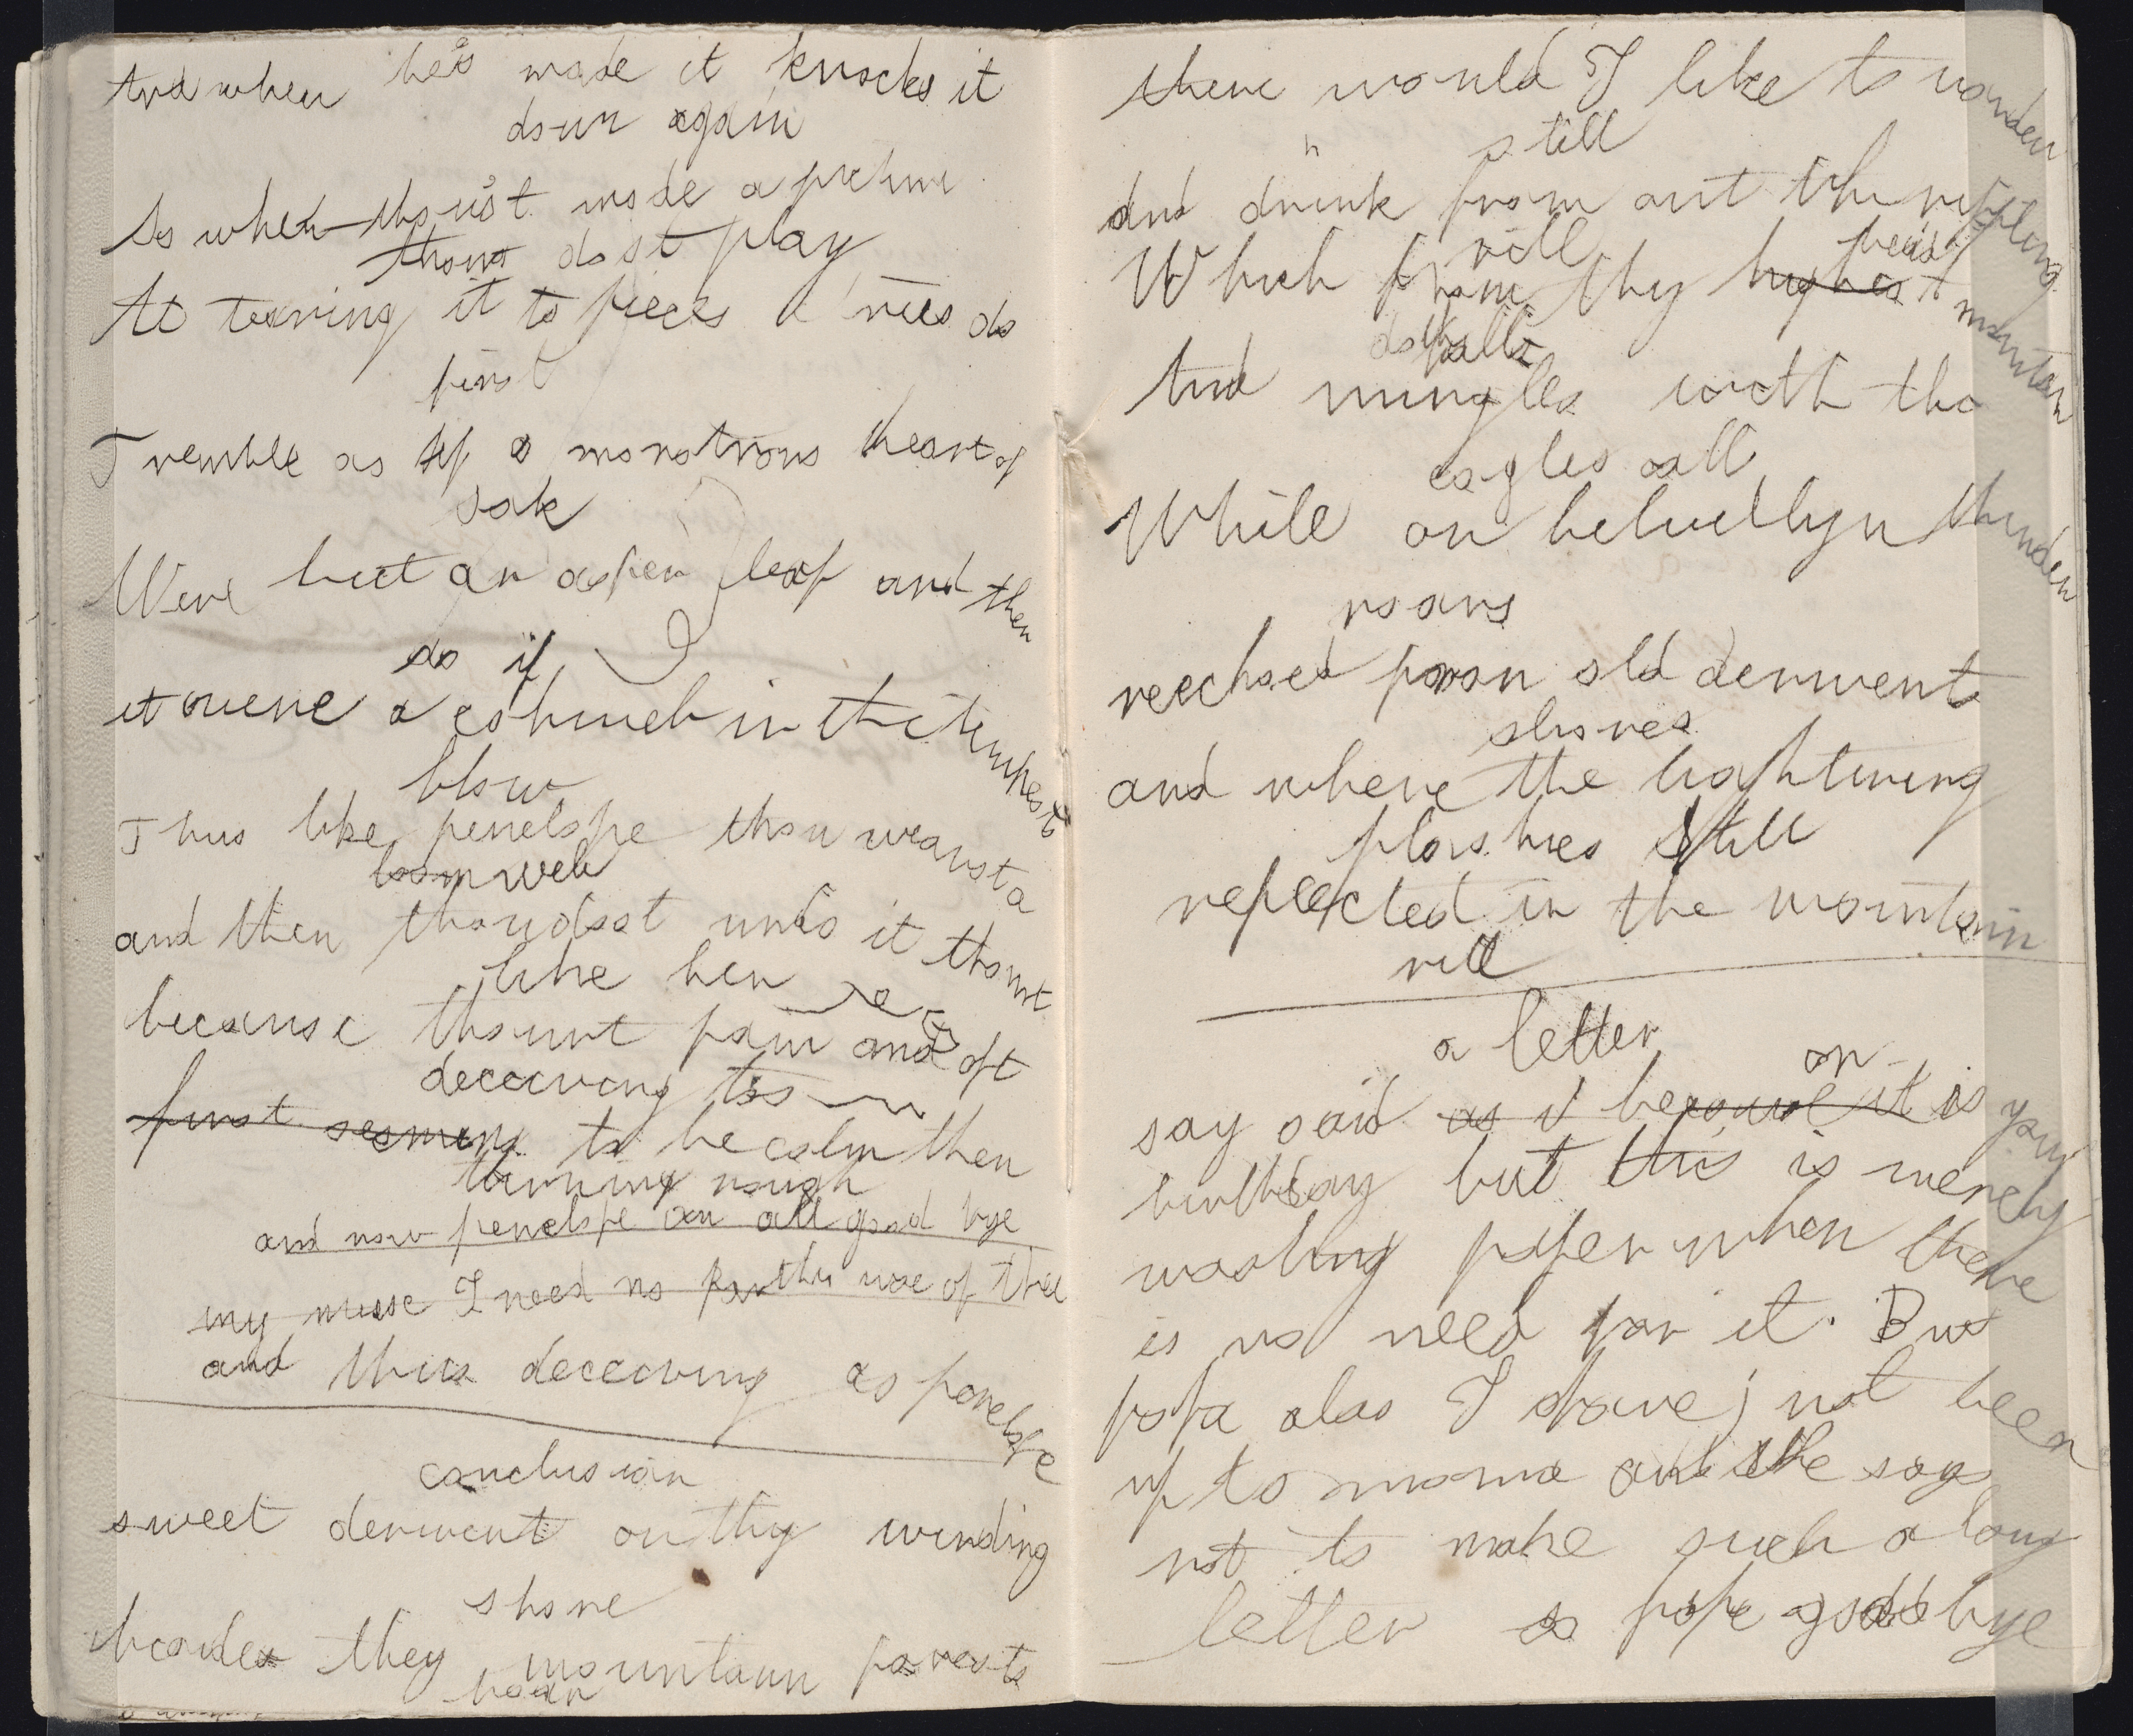 And when he's made it knocks it
down again
So when thou'st made a picture
thou dost play
At tearing it to pieces trees do
first
Tremble as if a monstrous heart of
oak
Were but an aspen leaf and then
as if
it were a cobweb in the tempests
blow
Thus like penelope thou weavst a
loom web
and then thou dost undo it thourt
like her
because thourt fair and oft
deceiving too
first seeming to be calm then
turning rough
and now penelope an all good bye
my muse I need no farther use of thee
and thus deceiving as penelope
conclusion
sweet derwent on thy winding
shore
beside they mountain forests
hoar
there would I like to wander
still
And drink from out the rippling
rill
Which from thy highest heist mountain
doth falls
And mingles with the
eagles call
While on helvellyn thunder
roars
reechoed from old derwents
shores
and where the lightning
flashes still
reflected in the mountain
rill
a letter
on
say said as I because it is your
birthday but this is merely
wasting paper when there
is no need for it. But
papa alas I have not been
up to mama and she says
not to make such a long
letter so papa goodbye